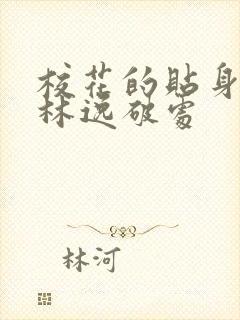 校花的贴身
林逸破处
林河